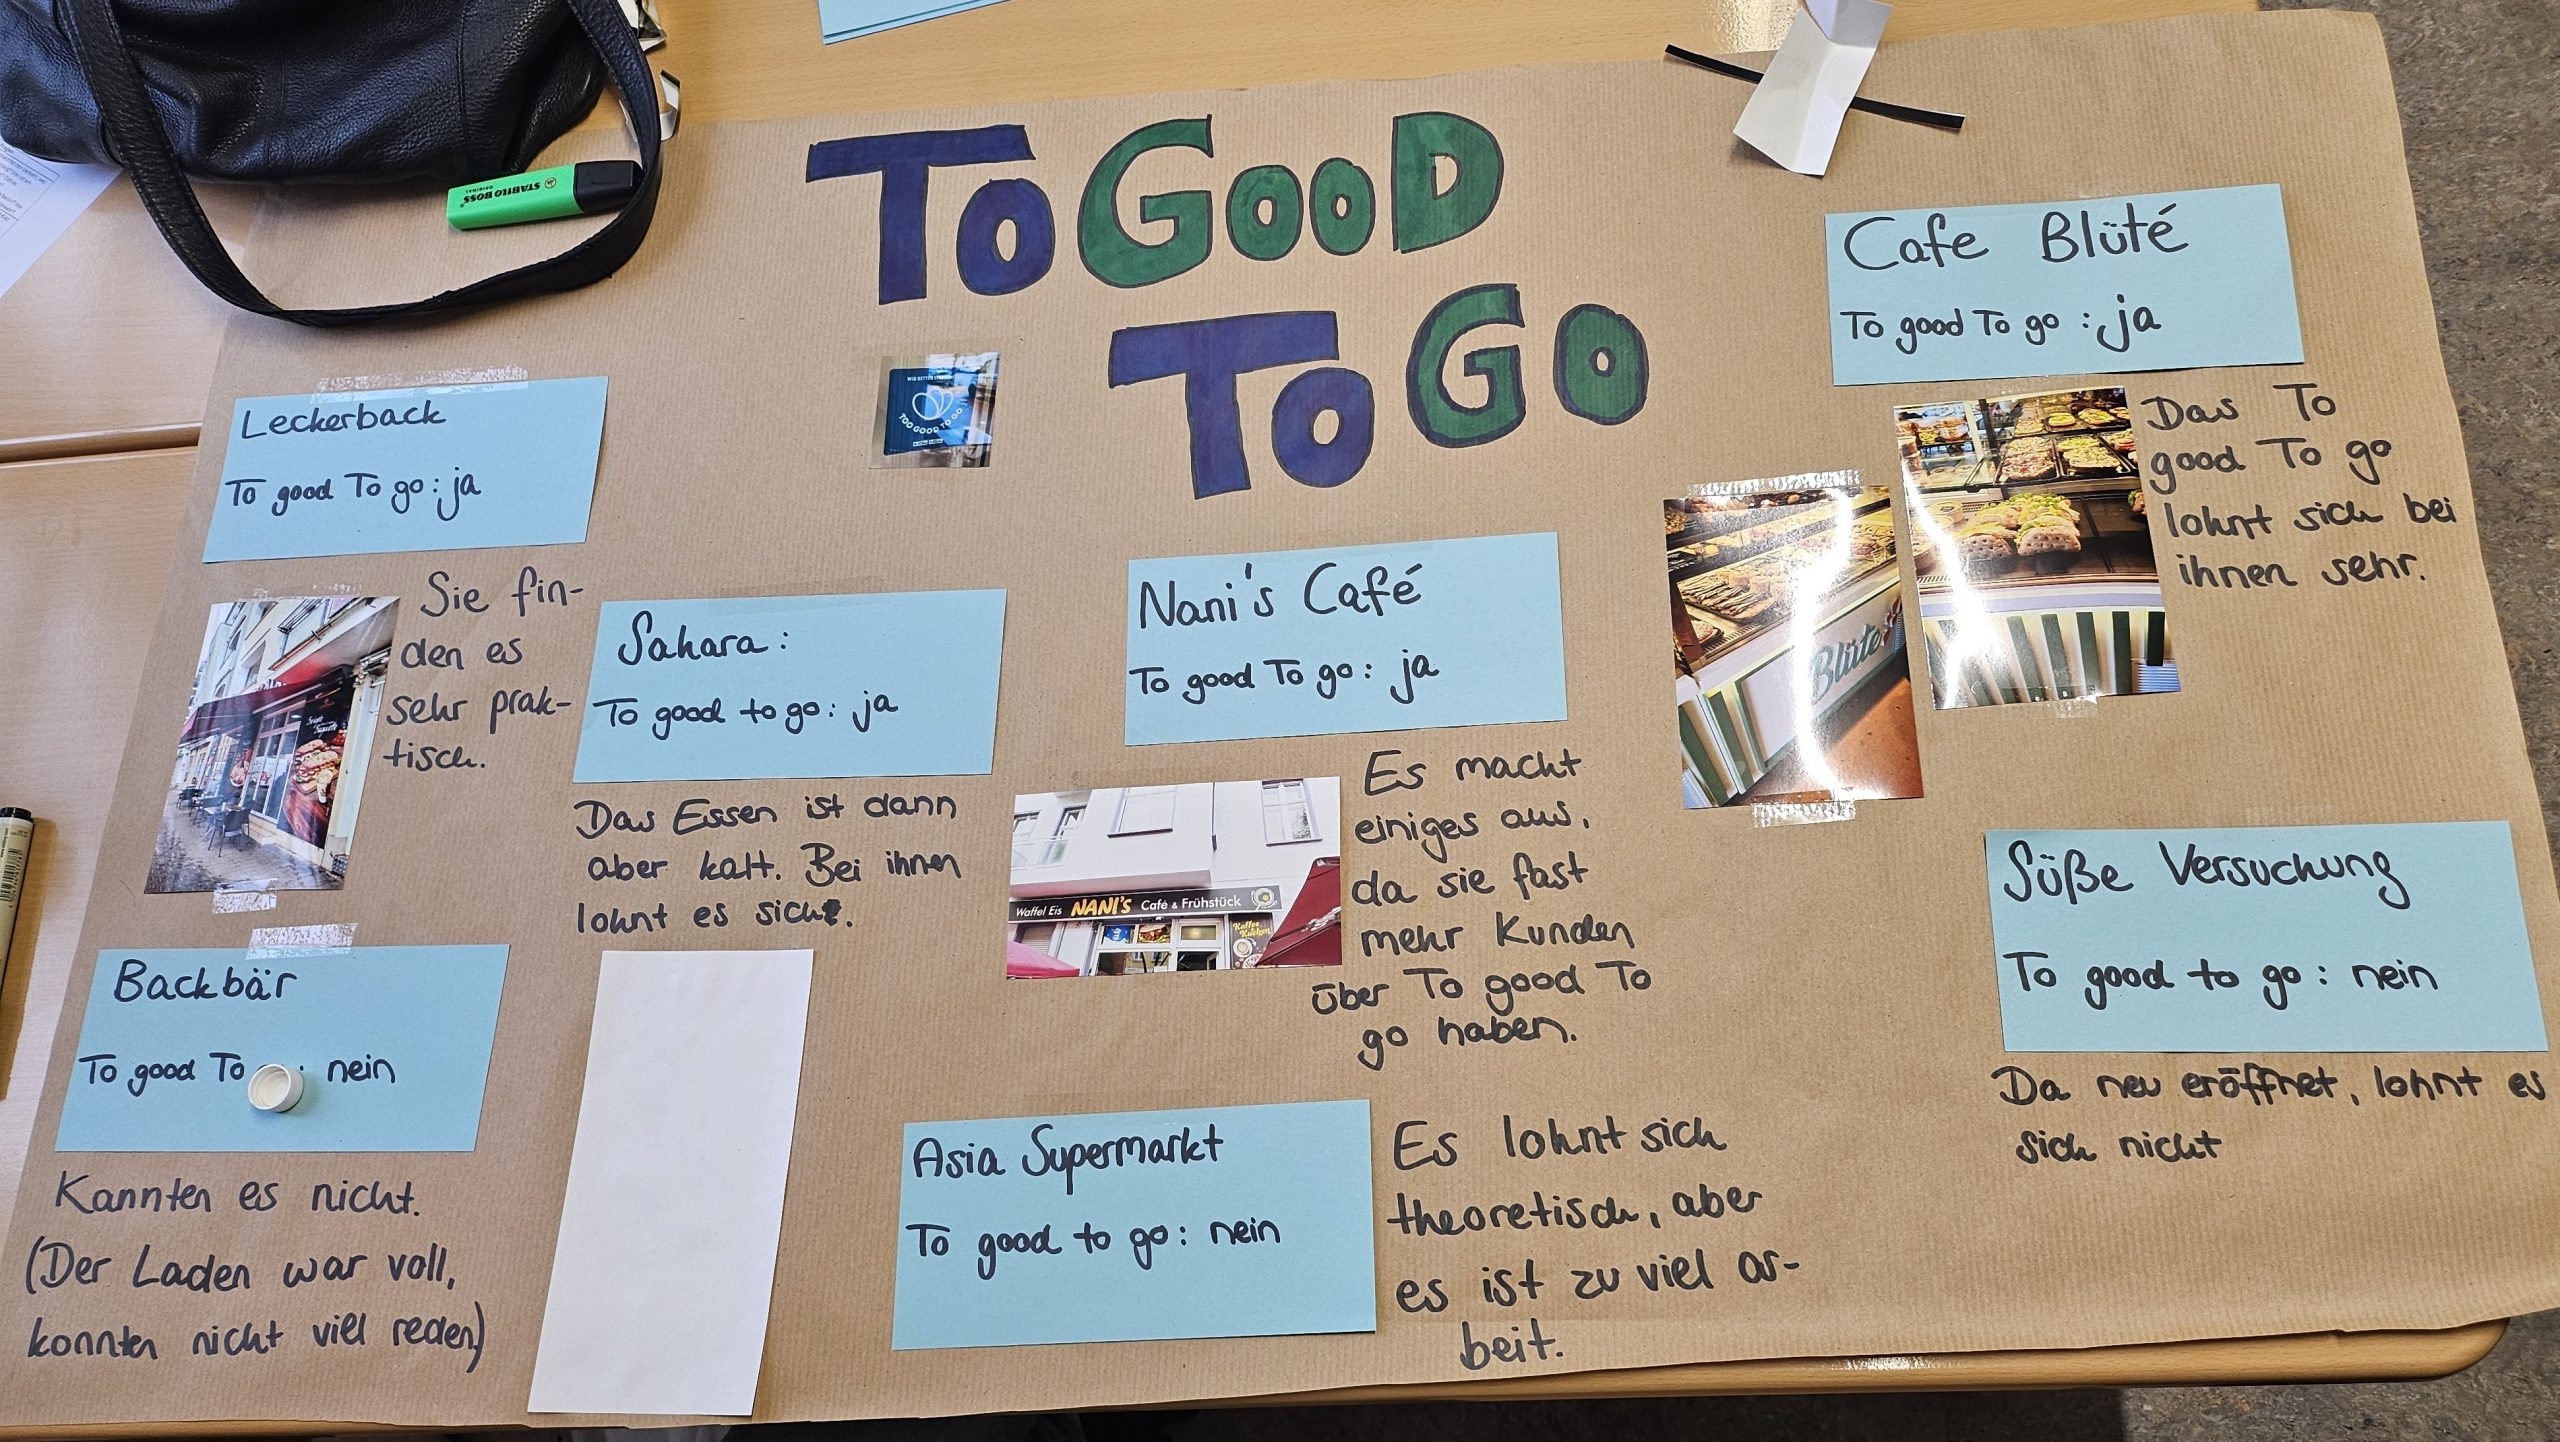 To GooD
To Go
STABILO BOSS
ORIGINAL
TOO GOOD TO GO
Leckerback
To good To go: ja
Sie fin-
den es
sehr prak-
tisch.
Sahara:
To good to go: ja
Das Essen ist dann
aber kalt. Bei ihnen
lohnt es sich.
Backbär
To good To : nein
Kannten es nicht.
(Der Laden war voll,
konnten nicht viel reden)
Nani's Café
To good To go: ja
Waffel Eis NANI'S Café & Frühstück
Kaffee
& Kuchen
Es macht
einiges aus,
da sie fast
mehr Kunden
über To good To
go haben.
Asia Supermarkt
To good to go: nein
Es lohnt sich
theoretisch, aber
es ist zu viel ar-
beit.
Cafe Blüté
To good To go: ja
Blüte
Das To
good To go
lohnt sich bei
ihnen sehr.
Süße Versuchung
To good to go: nein
Da neu eröffnet, lohnt es
sich nicht